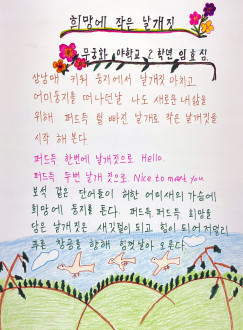 희망에 작은 날개짓
무궁화 야학교 2학년 임효심.
삼남매 키워 둥지에서 날개짓 마치고
어미둥지를 떠나던날 나도 새로운 내삶을
위해 퍼드득 털 빠진 날개로 작은 날개짓을
시작 해 본다.
퍼드득 한번에 날개짓으로 Hello.
퍼드득 두번 날개 짓으로 Nice to meet you
보석 같은 단어들이 허한 어미새의 가슴에
희망에 둥지를 튼다. 퍼드득 퍼드득 희망을
담은 날개짓은 새깃털이 되고 힘이 되어 저멀리
푸른 창공을 향해 힘껏날아 오른다.